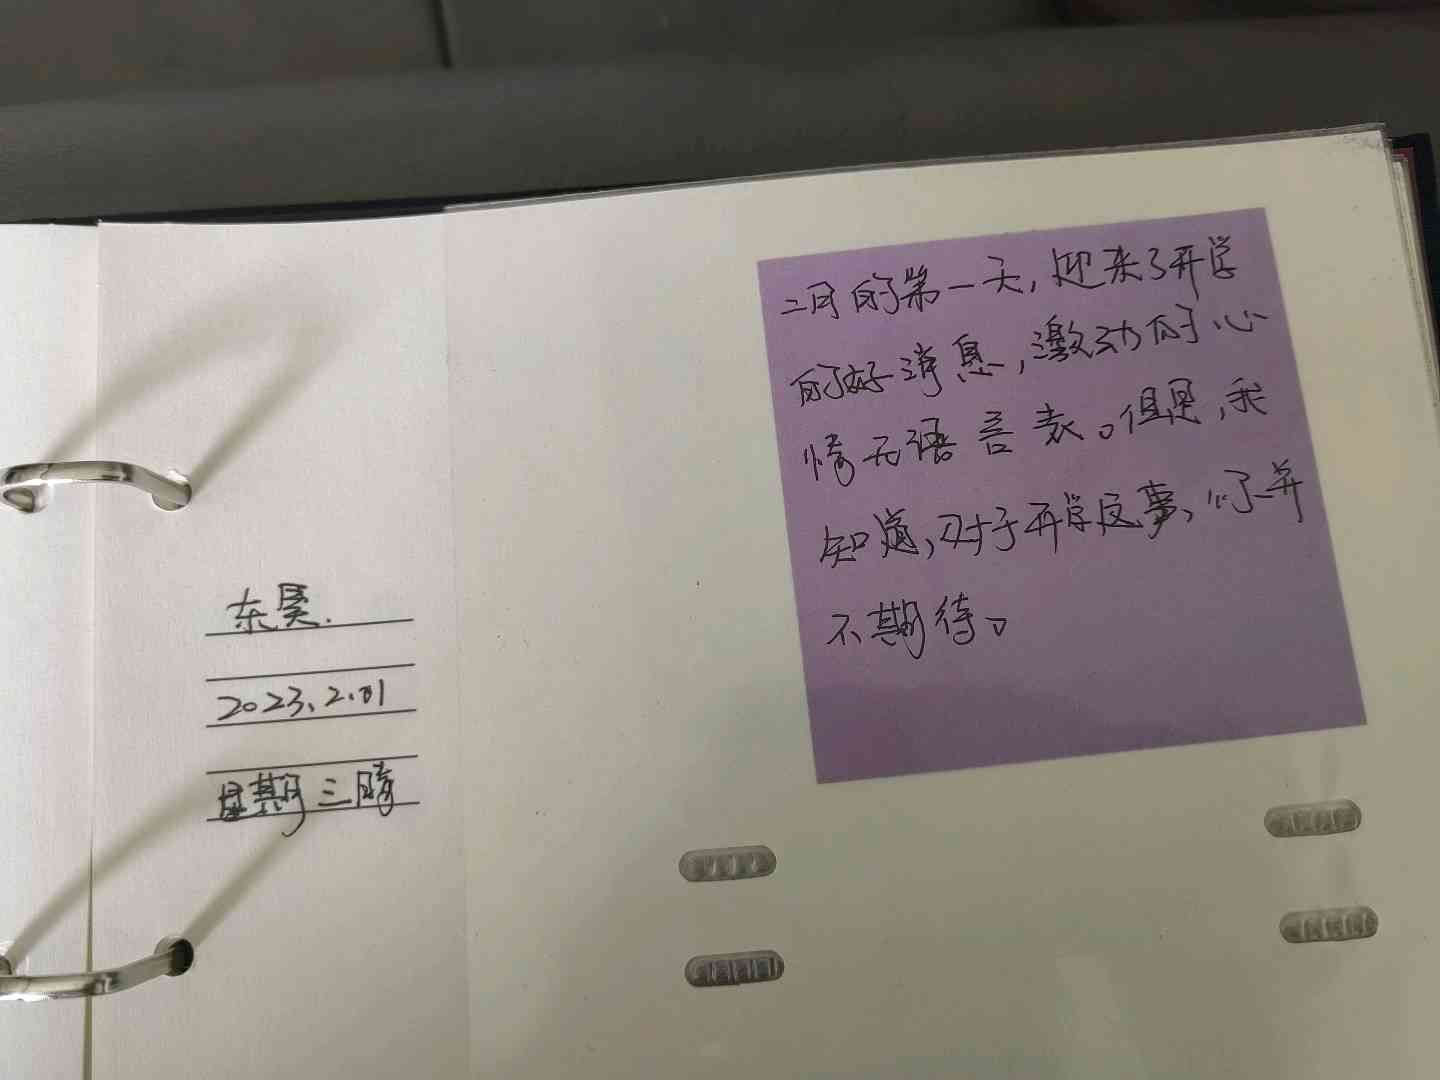 东昊.
2023.2.01
星期三晴
二月的第一天,迎来了开学
的好消息,激动的心
情无语言表。但是,我
知道,对于开学这事,你并
不期待。